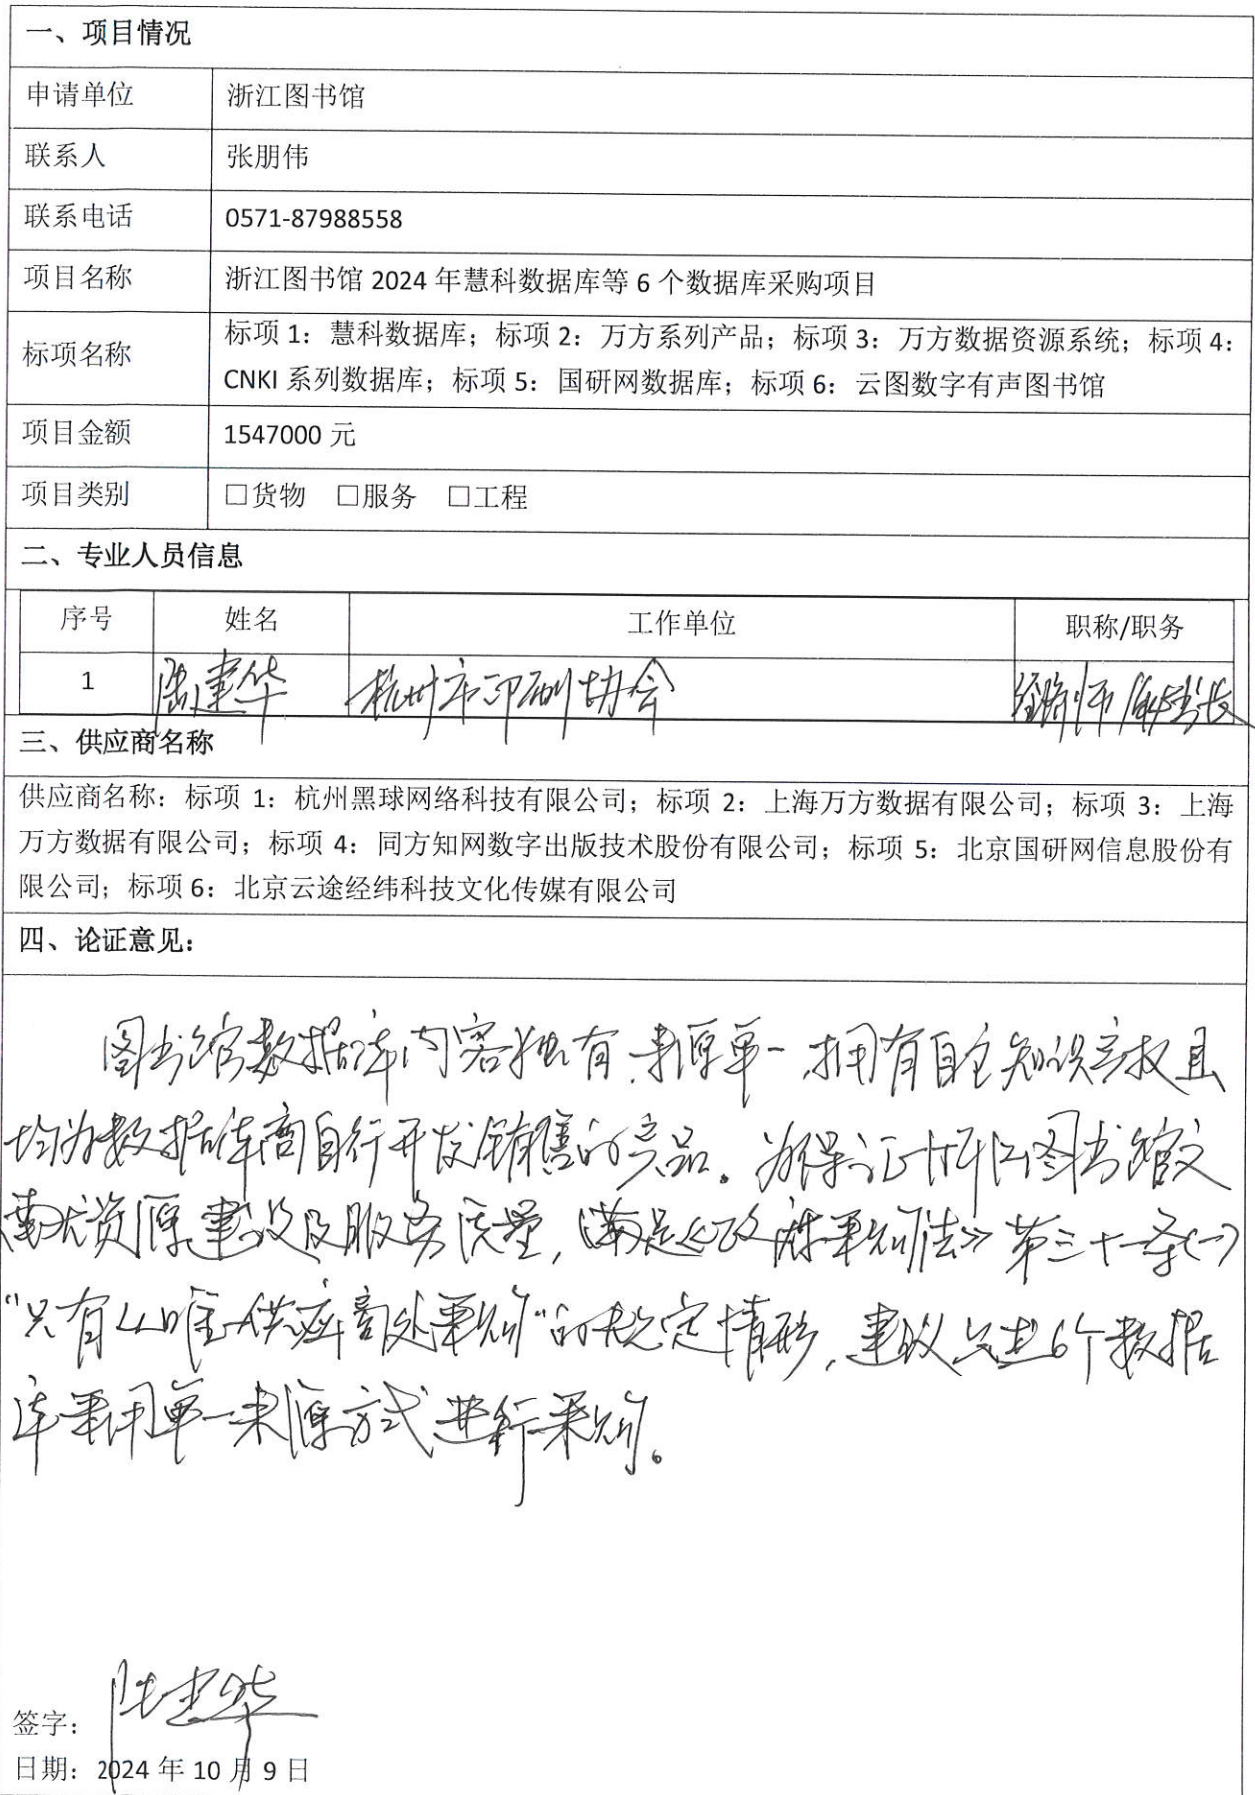 一、项目情况
申请单位 浙江图书馆
联系人 张朋伟
联系电话 0571-87988558
项目名称 浙江图书馆 2024 年慧科数据库等 6 个数据库采购项目
标项名称 标项 1：慧科数据库；标项 2：万方系列产品；标项 3：万方数据资源系统；标项 4：
CNKI 系列数据库；标项 5：国研网数据库；标项 6：云图数字有声图书馆
项目金额 1547000 元
项目类别 □货物 □服务 □工程
二、专业人员信息
序号 姓名 工作单位 职称/职务
1 陆建华 杭州市印刷协会 经济师/副秘书长
三、供应商名称
供应商名称：标项 1：杭州黑球网络科技有限公司；标项 2：上海万方数据有限公司；标项 3：上海
万方数据有限公司；标项 4：同方知网数字出版技术股份有限公司；标项 5：北京国研网信息股份有
限公司；标项 6：北京云途经纬科技文化传媒有限公司
四、论证意见：
图书馆数据库内容独有、来源单一，拥有自主知识产权且
均为数据库商自行开发销售的产品。为保证浙江图书馆文
献资源建设及服务质量，满足《政府采购法》第三十一条(一)
“只有从唯一供应商处采购”的规定情形，建议上述6个数据
库采用单一来源方式进行采购。
签字： 陆建华
日期：2024 年 10 月 9 日